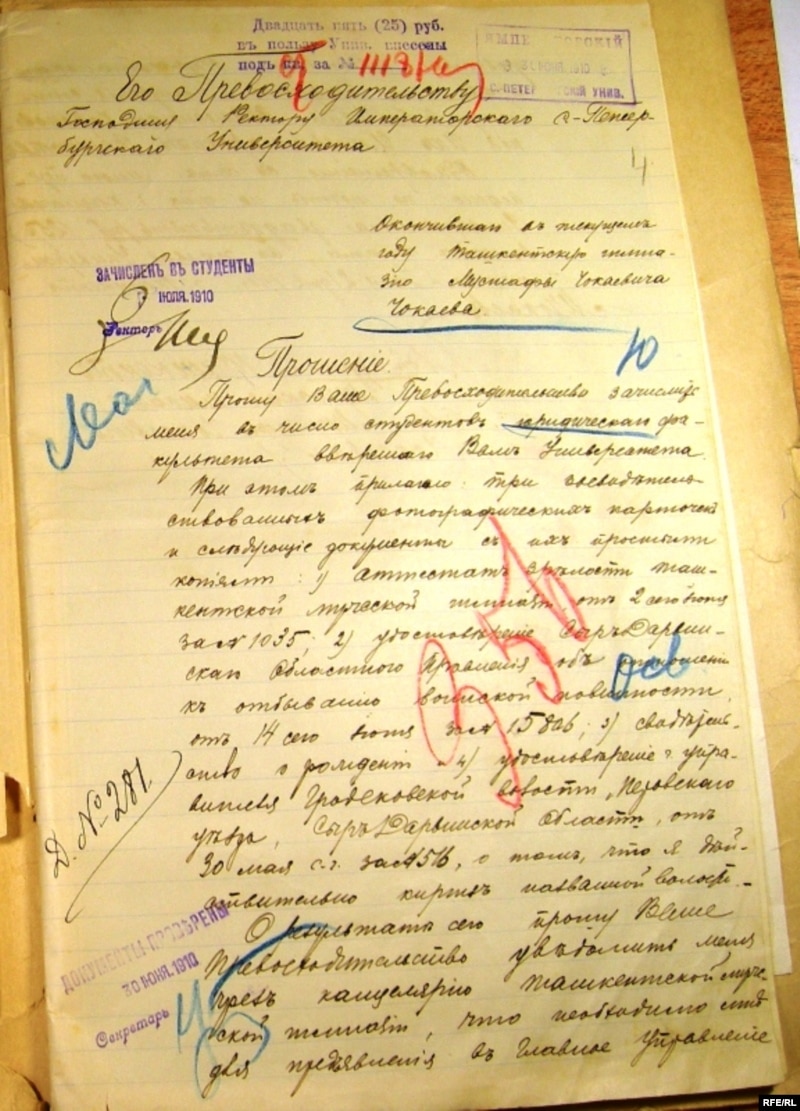 Двадцать пять (25) руб.
въ пользу Унив. внесены
подъ кв. за № 1113
С.-ПЕТЕРБУРГСКІЙ УНИВ.
Его Превосходительству
Господину Ректору Императорскаго С-Петер-
бургскаго Университета
4
Окончившаго въ текущемъ
году Ташкентскую гимна-
зію Мустафы Чокаевича
Чокаева
ЗАЧИСЛЕНЪ ВЪ СТУДЕНТЫ
ІЮЛЯ.1910
Ректоръ
Ю
Прошеніе.
Прошу Ваше Превосходительство зачислить
меня въ число студентовъ юридическаго фа-
культета ввѣреннаго Вамъ Университета.
При этомъ прилагаю: три засвидѣтель-
ствованныхъ фотографическихъ карточки
и слѣдующіе документы съ ихъ простыми
копіями: 1) аттестатъ зрѣлости Таш-
кентской мужской гимназіи, отъ 2 сего іюня
за № 1035; 2) удостовѣреніе Сыръ-Дарьин-
скаго Областного Правленія объ отношеніи
къ отбыванію воинской повинности,
отъ 14 сего іюня за № 15806; 3) свидѣтель-
ство о рожденіи 4) удостовѣреніе упра-
вителя Гродековской волости, Перовскаго
уѣзда, Сыръ-Дарьинской Области, отъ
30 мая с.г. за № 516, о томъ, что я дѣй-
ствительно киргизъ названной волости.
Д. № 281.
О результатѣ сего прошу Ваше
Превосходительство увѣдомить меня
чрезъ канцелярію Ташкентской муж-
ской гимназіи, что необходимо мнѣ
для предъявленія въ Главное Управленіе
ДОКУМЕНТЫ ПРОВѢРЕНЫ
30 ІЮНЯ.1910
Секретарь
RFE/RL